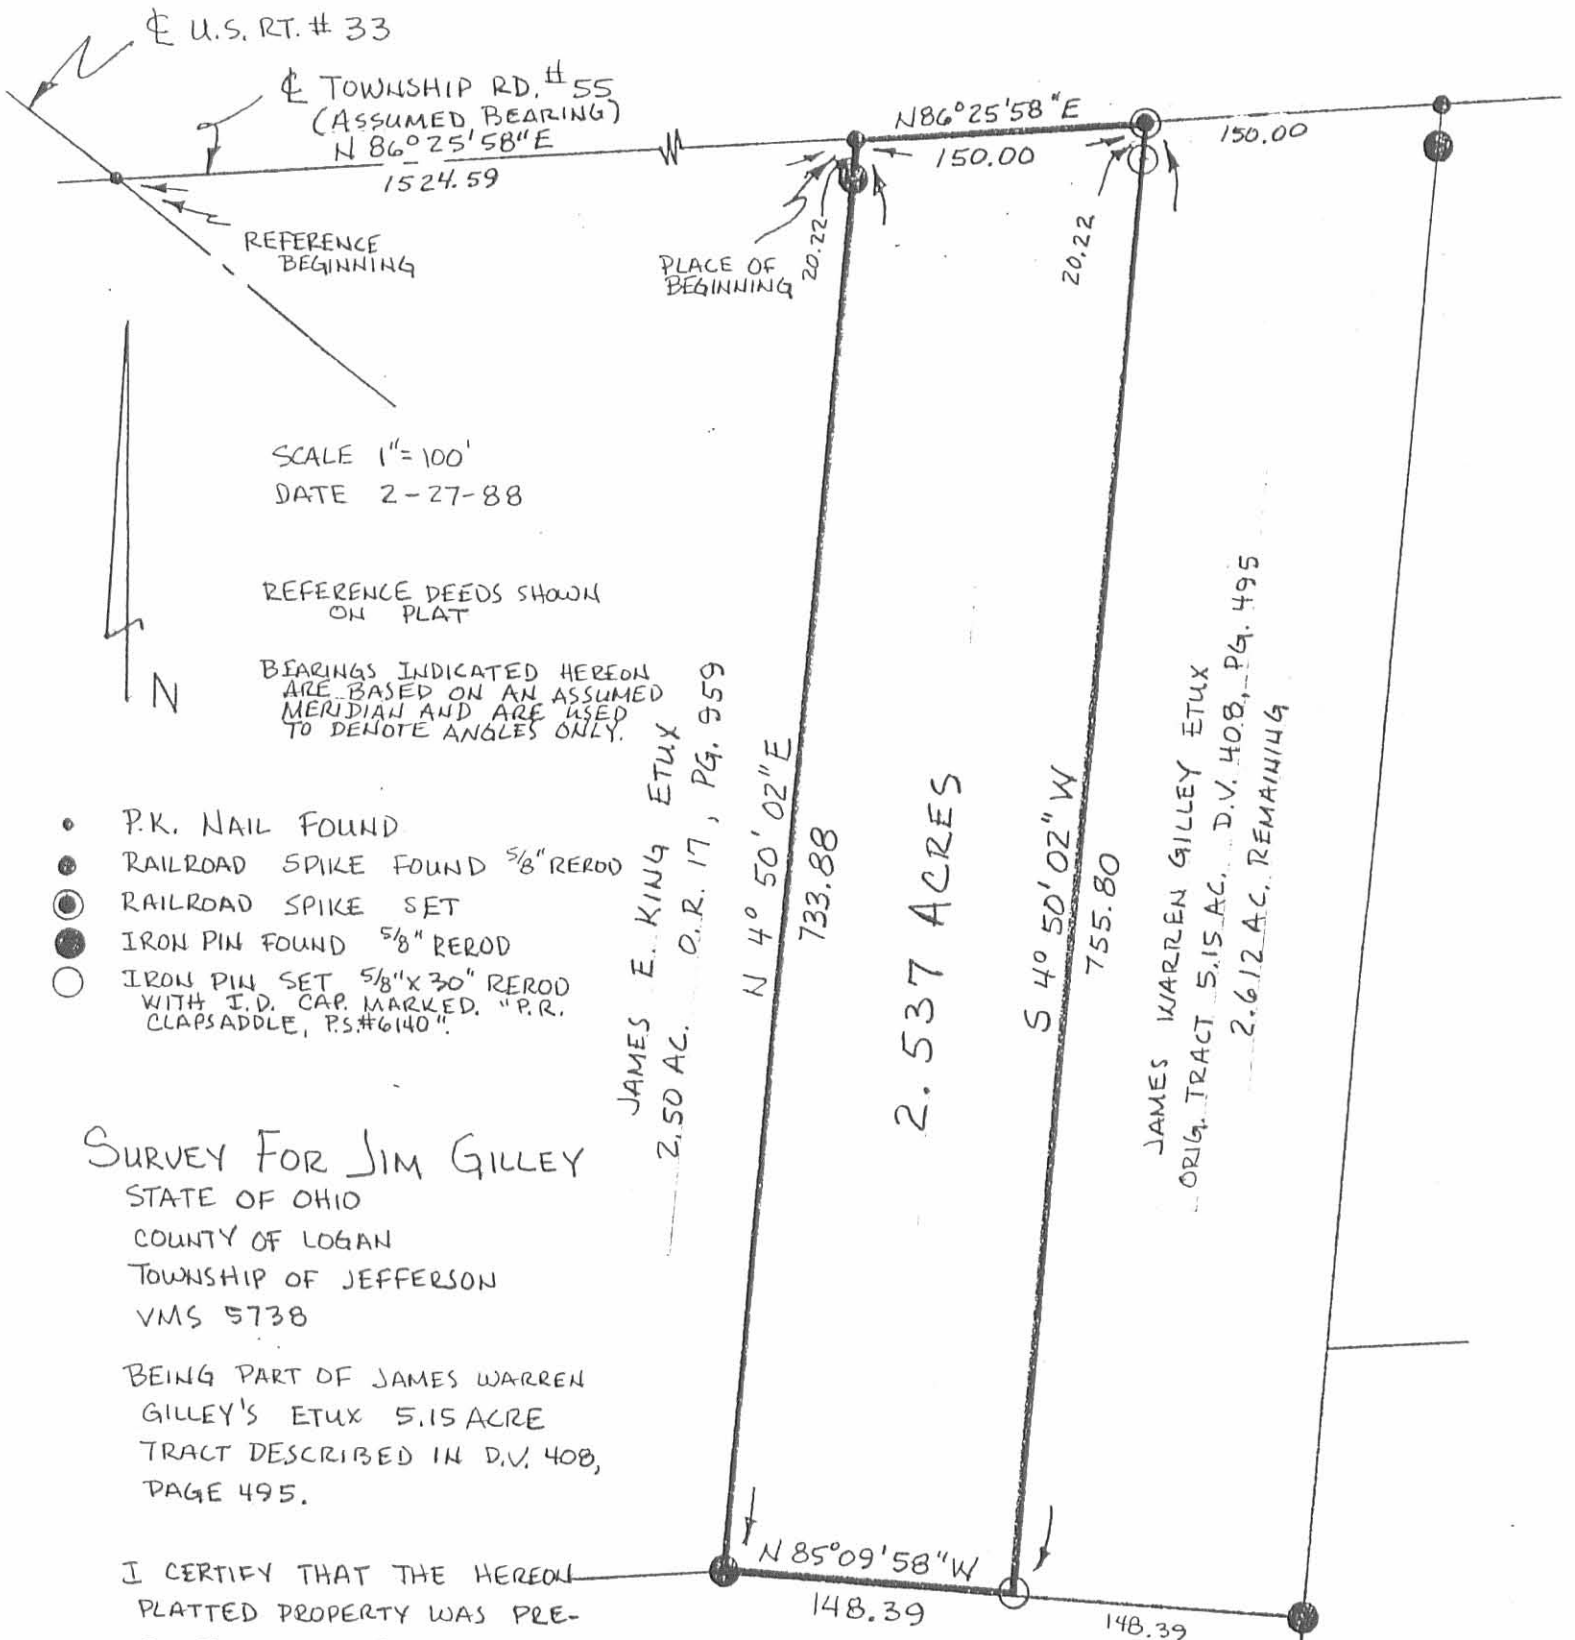 ℄ U.S. RT. # 33
℄ TOWNSHIP RD. #55
(ASSUMED BEARING)
N 86°25'58"E
1524.59
N86°25'58"E
150.00
150.00
REFERENCE
BEGINNING
PLACE OF
BEGINNING
20.22
20.22
SCALE 1"=100'
DATE 2-27-88
REFERENCE DEEDS SHOWN
ON PLAT
N
BEARINGS INDICATED HEREON
ARE BASED ON AN ASSUMED
MERIDIAN AND ARE USED
TO DENOTE ANGLES ONLY.
P.K. NAIL FOUND
RAILROAD SPIKE FOUND 5/8" REROD
RAILROAD SPIKE SET
IRON PIN FOUND 5/8" REROD
IRON PIN SET 5/8"X 30" REROD
WITH I.D. CAP. MARKED. "P.R.
CLAPSADDLE, P.S.#6140".
JAMES E. KING ETUX
2.50 AC. O.R. 17, PG. 959
N 4° 50' 02"E
733.88
2.537 ACRES
S 4° 50' 02" W
755.80
JAMES WARREN GILLEY ETUX
ORIG. TRACT 5.15 AC. D.V. 408, PG. 495
2.612 AC. REMAINING
SURVEY FOR JIM GILLEY
STATE OF OHIO
COUNTY OF LOGAN
TOWNSHIP OF JEFFERSON
VMS 5738
BEING PART OF JAMES WARREN
GILLEY'S ETUX 5.15 ACRE
TRACT DESCRIBED IN D.V. 408,
PAGE 495.
I CERTIFY THAT THE HEREON
PLATTED PROPERTY WAS PRE-
N 85°09'58"W
148.39
148.39